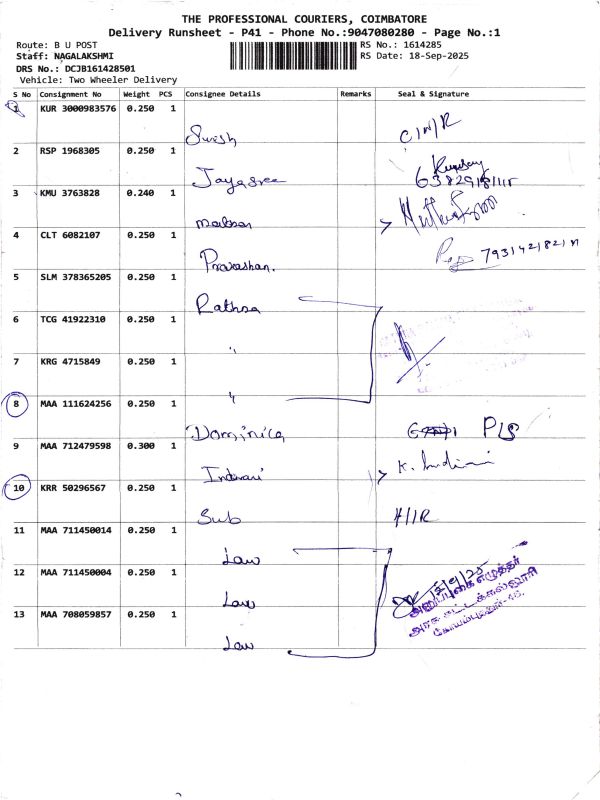 THE PROFESSIONAL COURIERS, COIMBATORE
Delivery Runsheet - P41 - Phone No.:9047080280 - Page No.:1
Route: B U POST
RS No.: 1614285
Staff: NAGALAKSHMI
RS Date: 18-Sep-2025
DRS No.: DCJB161428501
Vehicle: Two Wheeler Delivery
S No Consignment No Weight PCS Consignee Details Remarks Seal & Signature
1 KUR 3000983576 0.250 1
Swish C/N/R
2 RSP 1968305 0.250 1
Jayasree
3 KMU 3763828 0.240 1
4 CLT 6082107 0.250 1
5 SLM 378365205 0.250 1
Rathna
6 TCG 41922310 0.250 1
"
7 KRG 4715849 0.250 1
"
8 MAA 111624256 0.250 1
Dominica P/S
9 MAA 712479598 0.300 1
Indrani K. Indirani
10 KRR 50296567 0.250 1
Sub H/R
11 MAA 711450014 0.250 1
Law
12 MAA 711450004 0.250 1
Law
அனுப்புகை எழுத்தர்
அரசு சட்டக்கல்லூரி
கோயம்புத்தூர்-46.
13 MAA 708059857 0.250 1
Law